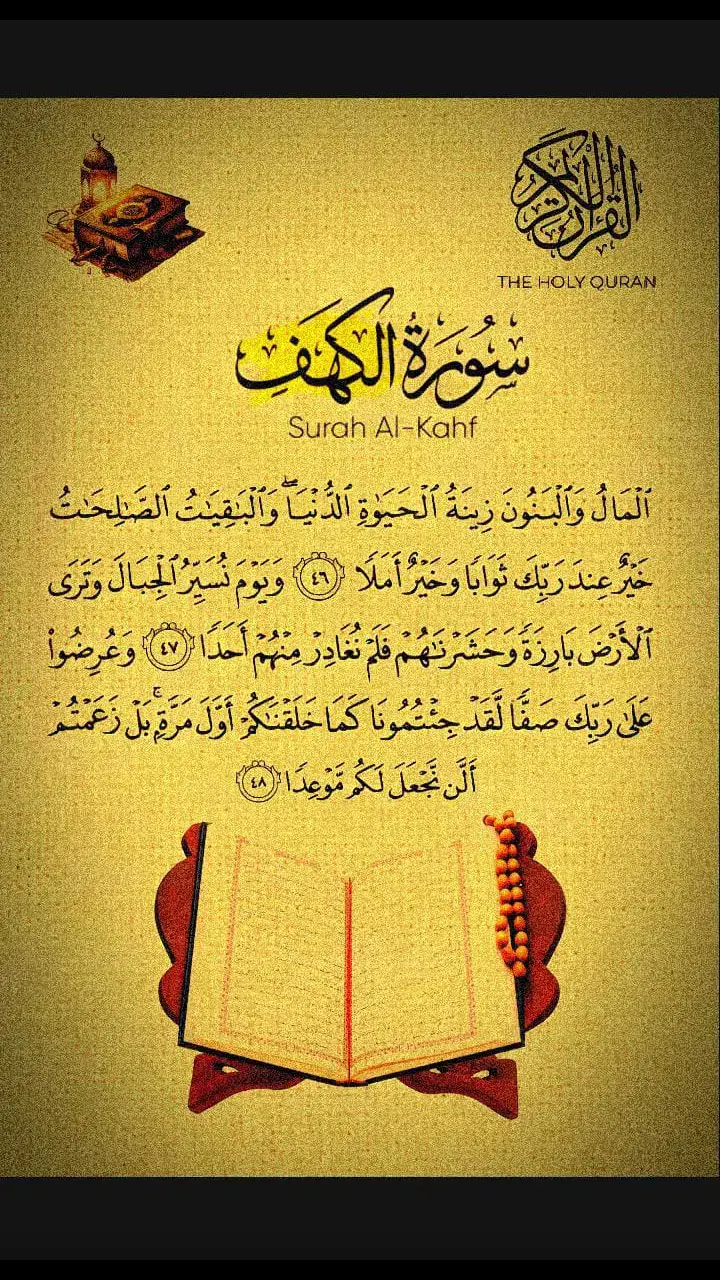 القرآن الكريم
THE HOLY QURAN
سُورَةُ الكَهفِ
Surah Al-Kahf
ٱلۡمَالُ وَٱلۡبَنُونَ زِينَةُ ٱلۡحَيَوٰةِ ٱلدُّنۡيَاۖ وَٱلۡبَٰقِيَٰتُ ٱلصَّٰلِحَٰتُ
خَيۡرٌ عِندَ رَبِّكَ ثَوَابٗا وَخَيۡرٌ أَمَلٗا ٤٦ وَيَوۡمَ نُسَيِّرُ ٱلۡجِبَالَ وَتَرَى
ٱلۡأَرۡضَ بَارِزَةٗ وَحَشَرۡنَٰهُمۡ فَلَمۡ نُغَادِرۡ مِنۡهُمۡ أَحَدٗا ٤٧ وَعُرِضُواْ
عَلَىٰ رَبِّكَ صَفّٗا لَّقَدۡ جِئۡتُمُونَا كَمَا خَلَقۡنَٰكُمۡ أَوَّلَ مَرَّةِۭۚ بَلۡ زَعَمۡتُمۡ
أَلَّن نَّجۡعَلَ لَكُم مَّوۡعِدٗا ٤٨